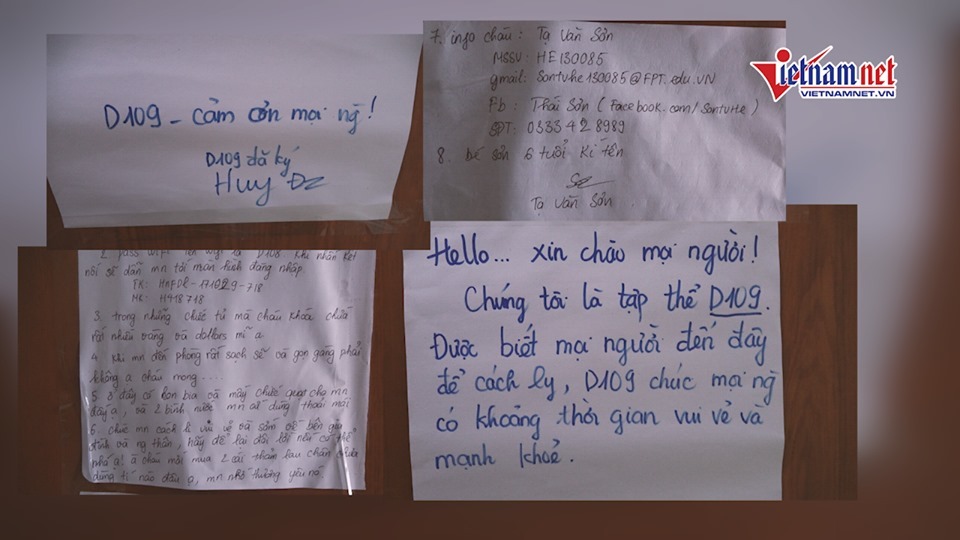 D109 - cảm ơn mọi ng!
D109 đã ký
Huy ĐZ
7. info cháu: Tạ Văn Sơn
MSSV: HE130085
gmail: Sontvhe130085@FPT.edu.VN
Fb: Thái Sơn (Facebook.com/SontvHe)
SĐT: 0333428989
8. bé Sơn 6 tuổi kí tên
Tạ Văn Sơn
Vietnamnet
VIETNAMNET.VN
2. pass wifi là D108. Khi nhấn kết
nối sẽ dẫn mn tới màn hình đăng nhập.
MK: H418718
3. trong những chiếc tủ mà cháu khoá chứa
rất nhiều vàng và dollars mĩ ạ.
4. khi mn đến phòng rất sạch sẽ và gọn gàng phải
không ạ cháu mong....
5. ở đây có lon bia và mấy chiếc quạt cho mn
đấy ạ, và 2 bình nước mn cứ dùng thoải mái
6. chúc mn cách li vui vẻ và sớm về bên gia
đình và ng thân, hãy để lại đôi lời nếu có thể
nhá ạ! à cháu mới mua 2 cái thảm lau chân chưa
dùng tí nào đâu ạ, mn nhớ thương yêu nó
Hello... xin chào mọi người!
Chúng tôi là tập thể D109.
Được biết mọi người đến đây
để cách ly, D109 chúc mọi ng
có khoảng thời gian vui vẻ và
mạnh khoẻ.